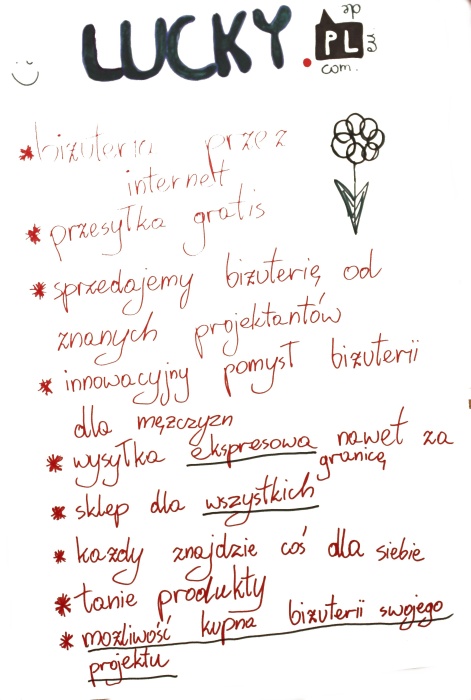 LUCKY.PL
de
eu
com.
* biżuteria przez
internett
* przesyłka gratis
* sprzedajemy biżuterię od
znanych projektantów
* innowacyjny pomysł biżuterii
dla mężczyzn
* wysyłka ekspresowa nawet za
granicę
* sklep dla wszystkich
* każdy znajdzie coś dla siebie
* tanie produkty
* możliwość kupna biżuterii swojego
projektu